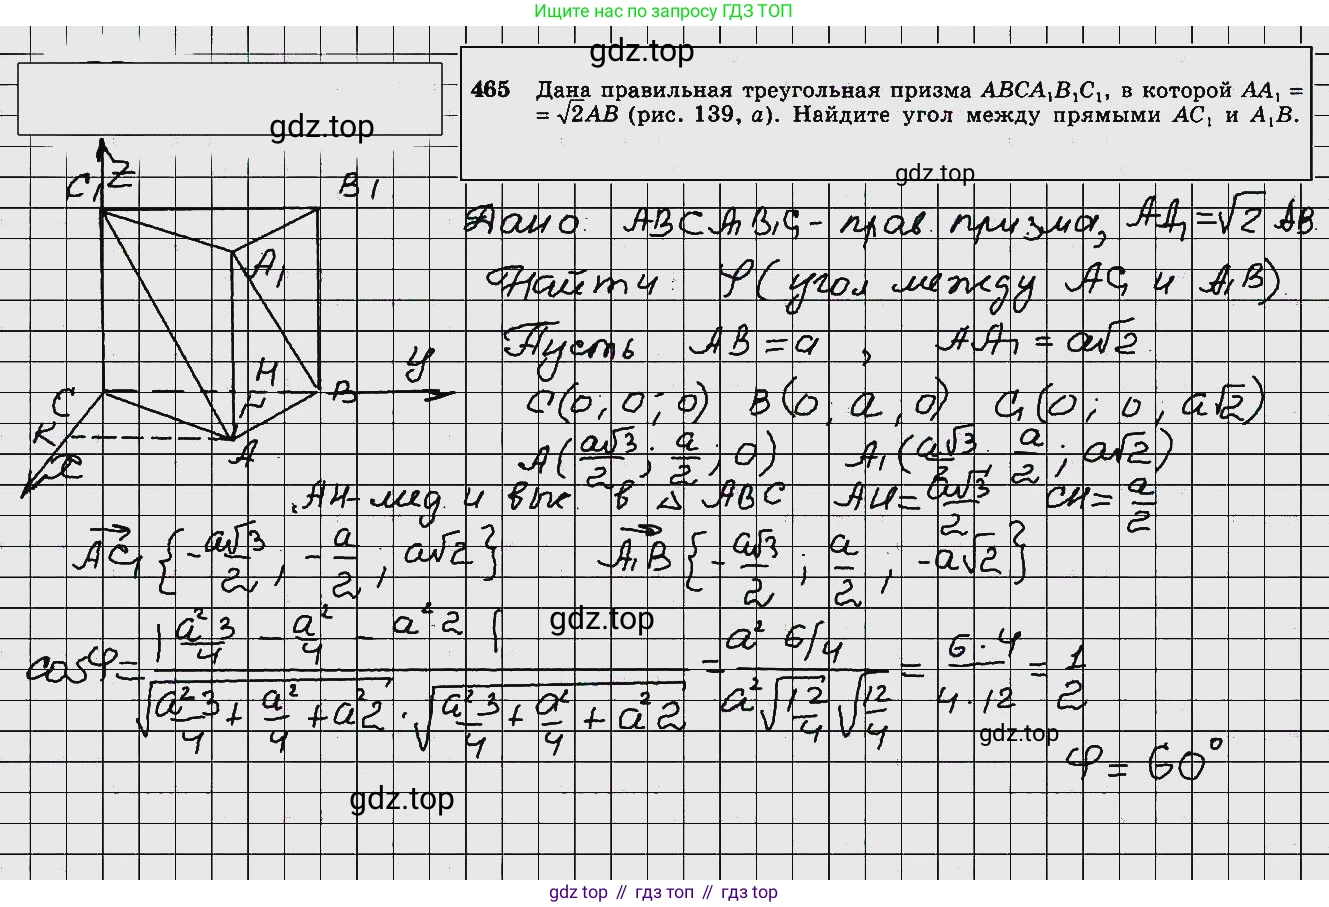 Ищите нас по запросу ГДЗ ТОП
gdz.top
465 Дана правильная треугольная призма ABCA₁B₁C₁, в которой AA₁ =
= √2AB (рис. 139, а). Найдите угол между прямыми AC₁ и A₁B.
gdz.top
gdz.top
C₁ Z B₁
A₁
H У
C B
K A
X
Дано: ABCA₁B₁C₁ - прав. призма, AA₁ = √2 AB.
Найти: φ (угол между AC₁ и A₁B).
Пусть AB = a, AA₁ = a√2
C(0; 0; 0) B(0, a, 0) C₁(0; 0, a√2)
A(a√3/2; a/2; 0) A₁(a√3/2; a/2; a√2)
AH - мед. и выс. в △ ABC AH = a√3/2 CH = a/2
AC₁ {-a√3/2, -a/2; a√2} A₁B {-a√3/2; a/2, -a√2}
cos φ = |a²3/4 - a²/4 - a²2| / √(a²3/4 + a²/4 + a²2) · √(a²3/4 + a²/4 + a²2) = a² 6/4 / a²√(12/4) √(12/4) = 6·4 / 4·12 = 1/2
gdz.top
gdz.top
φ = 60°
gdz.top
gdz top // гдз топ // гдз top